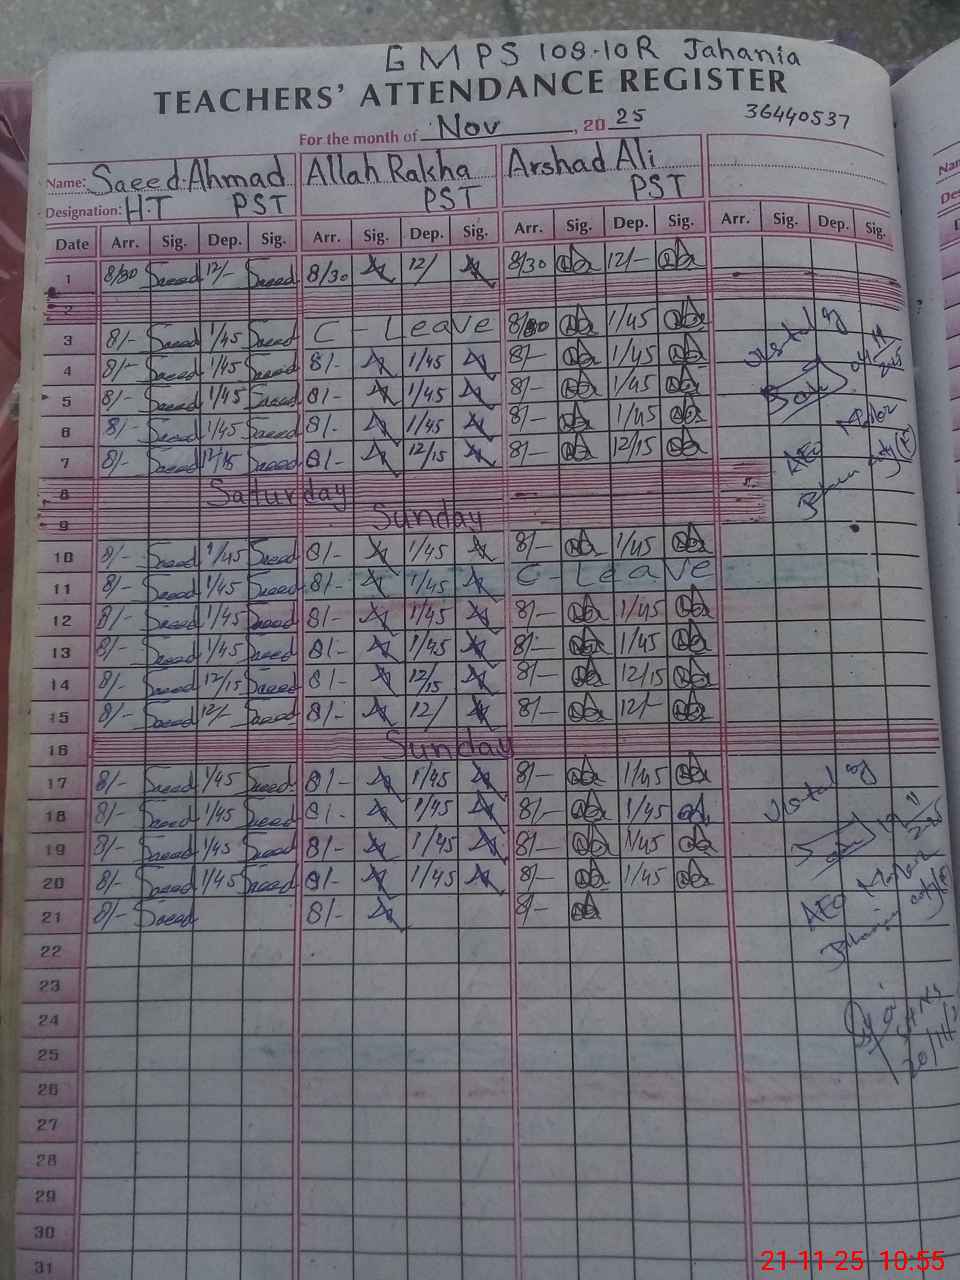 GMPS 108-10R Jahania
TEACHERS' ATTENDANCE REGISTER
36440537
For the month of Nov, 2025
Name: Saeed Ahmad Allah Raksha Arshad Ali
Designation: H.T PST PST PST
Date Arr. Sig. Dep. Sig. Arr. Sig. Dep. Sig. Arr. Sig. Dep. Sig. Arr. Sig. Dep. Sig.
1 8/30 Saeed 12/- Saeed 8/30 12/ 8/30 12/-
2
3 8/- Saeed 1/45 Saeed C - Leave 8/ 1/45
4 8/- Saeed 1/45 Saeed 8/- 1/45 8/- 1/45
5 8/- Saeed 1/45 Saeed 8/- 1/45 8/- 1/45
6 8/- Saeed 1/45 Saeed 8/- 1/45 8/- 1/45
7 8/- Saeed 12/15 Saeed 8/- 12/15 8/- 12/15
8 Saturday
9 Sunday
10 8/- Saeed 1/45 Saeed 8/- 1/45 8/- 1/45
11 8/- Saeed 1/45 Saeed 8/- 1/45 C - Leave
12 8/- Saeed 1/45 Saeed 8/- 1/45 8/- 1/45
13 8/- Saeed 1/45 Saeed 8/- 1/45 8/- 1/45
14 8/- Saeed 12/15 Saeed 8/- 12/15 8/- 12/15
15 8/- Saeed 12/- Saeed 8/- 12/ 8/- 12/-
16 Sunday
17 8/- Saeed 1/45 Saeed 8/- 1/45 8/- 1/45
18 8/- Saeed 1/45 Saeed 8/- 1/45 8/- 1/45
19 8/- Saeed 1/45 Saeed 8/- 1/45 8/- 1/45
20 8/- Saeed 1/45 Saeed 8/- 1/45 8/- 1/45
21 8/- Saeed 8/- 8/-
22
23
24
25
26
27
28
29
30
31
AEO
AEO
21-11-25 10:55